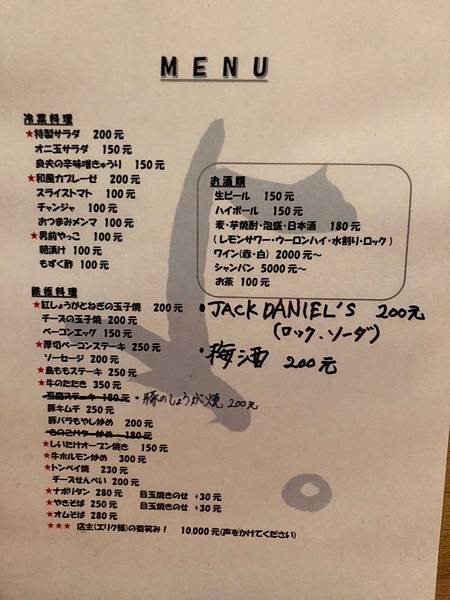 MENU
冷菜料理
★特製サラダ 200元
オニ玉サラダ 150元
良夫の辛味噌きゅうり 150元
★和風カプレーゼ 200元
スライストマト 100元
チャンジャ 100元
おつまみメンマ 100元
★男前やっこ 100元
朝漬け 100元
もずく酢 100元
鉄板料理
★紅しょうがとねぎの玉子焼 200元
チーズの玉子焼 200元
ベーコンエッグ 150元
★厚切ベーコンステーキ 250元
ソーセージ 200元
★鳥ももステーキ 250元
★牛のたたき 350元
豆腐ステーキ 180元 ・豚のしょうが焼 200元
豚キムチ 250元
豚バラもやし炒め 200元
きのこバター炒め 180元
★しいたけオーブン焼き 150元
★牛ホルモン炒め 300元
★トンペイ焼 230元
チーズせんべい 200元
★ナポリタン 280元 目玉焼きのせ +30元
★やきそば 250元 目玉焼きのせ +30元
★オムそば 280元
★★★ 店主(エリク様)の微笑み! 10,000元(声をかけてください)
お酒類
生ビール 150元
ハイボール 150元
麦・芋焼酎・泡盛・日本酒 180元
(レモンサワー・ウーロンハイ・水割り・ロック)
ワイン(赤・白) 2000元~
シャンパン 5000元~
お茶 100元
・JACK DANIEL'S 200元
(ロック、ソーダ)
・梅酒 200元